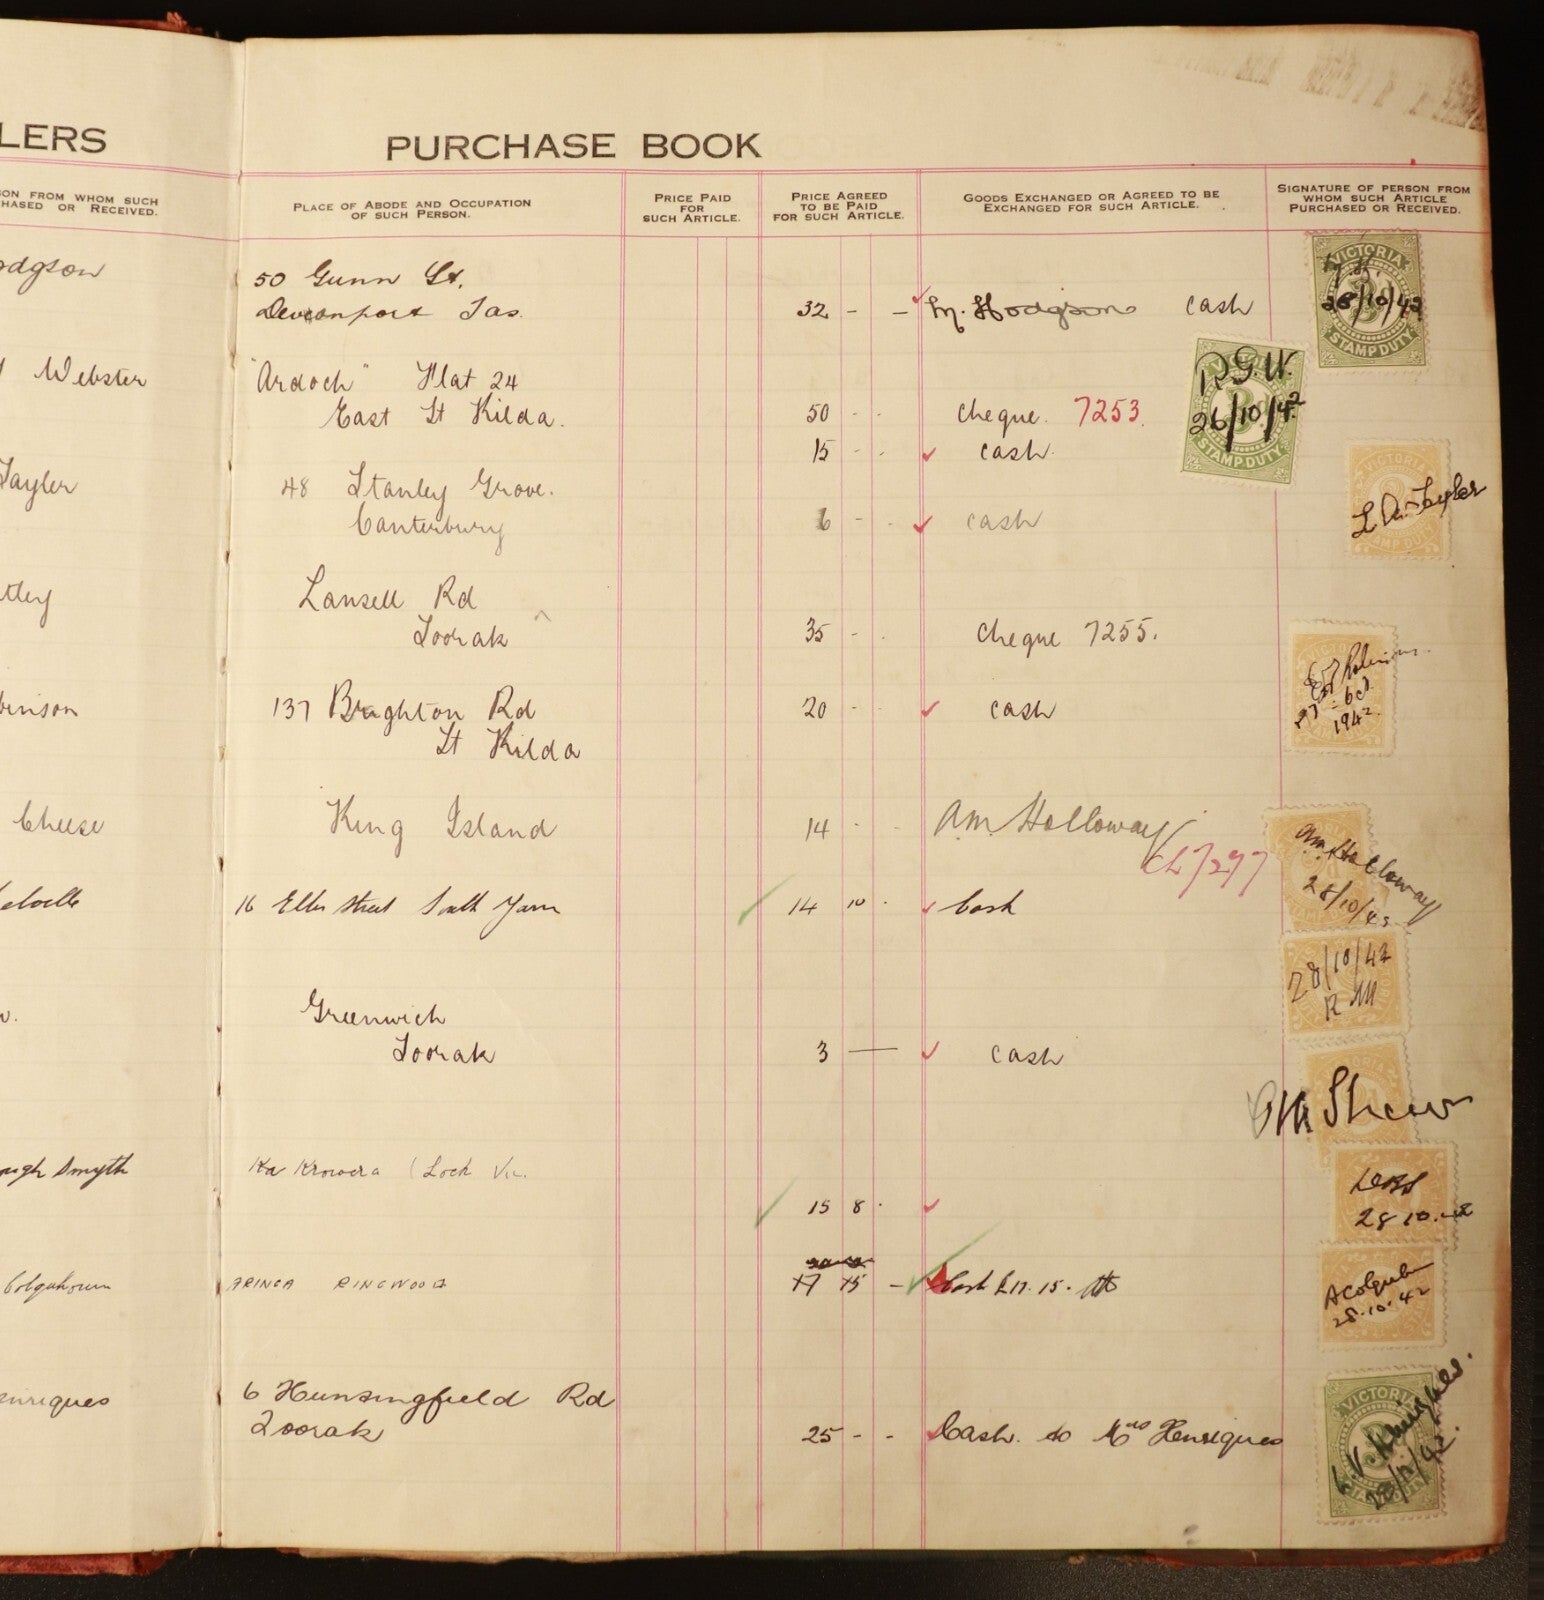 LERS
PURCHASE BOOK
ON FROM WHOM SUCH
HASED OR RECEIVED.
PLACE OF ABODE AND OCCUPATION
OF SUCH PERSON.
PRICE PAID
FOR
SUCH ARTICLE.
PRICE AGREED
TO BE PAID
FOR SUCH ARTICLE.
GOODS EXCHANGED OR AGREED TO BE
EXCHANGED FOR SUCH ARTICLE.
SIGNATURE OF PERSON FROM
WHOM SUCH ARTICLE
PURCHASED OR RECEIVED.
odgson
50 Gunn St.
Devonport Tas.
32 - - M. Hodgson cash
VICTORIA
28/10/42
STAMP DUTY
Webster
"Ardoch" Flat 24
East St Kilda.
50 - - cheque. 7253.
R.G.W.
26/10/42
STAMP DUTY
15 - - cash.
Tayler
48 Stanley Grove.
Canterbury
6 - - cash
VICTORIA
L Tayler
STAMP DUTY
tley
Lansell Rd
Toorak
35 - - cheque 7255.
binson
137 Brighton Rd
St Kilda
20 - - cash
27 Oct
1942
Cheese
King Island
14 - - A.M. Holloway
Ch 7297
A.M. Holloway
28/10/42
elville
16 Ellis Street South Yarra
14 10 - Cash
28/10/42
R M
Greenwich
Toorak
3 — cash
Shaw
ough Smyth
Ka Krowera (Loch Vic.
15 8 -
28.10.42
Colquhoun
ARINGA RINGWOOD
17 15 - Cash £17.15.
A Colquhoun
28.10.42
enriques
6 Hunsingfield Rd
Toorak
25 - - Cash. to Mrs Henriques
VICTORIA